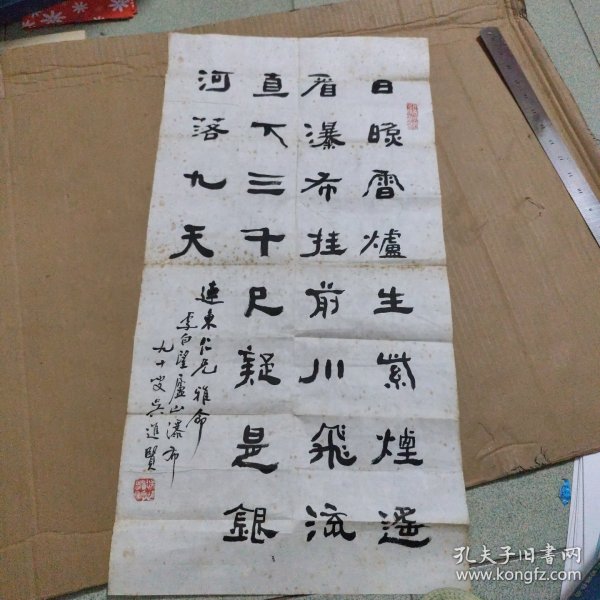 日照香爐生紫煙遙
看瀑布挂前川飛流
直下三千尺疑是銀
河落九天
連東仁兄雅命
李白望廬山瀑布
九十叟吳進賢
孔夫子旧書网
www.kongfz.com